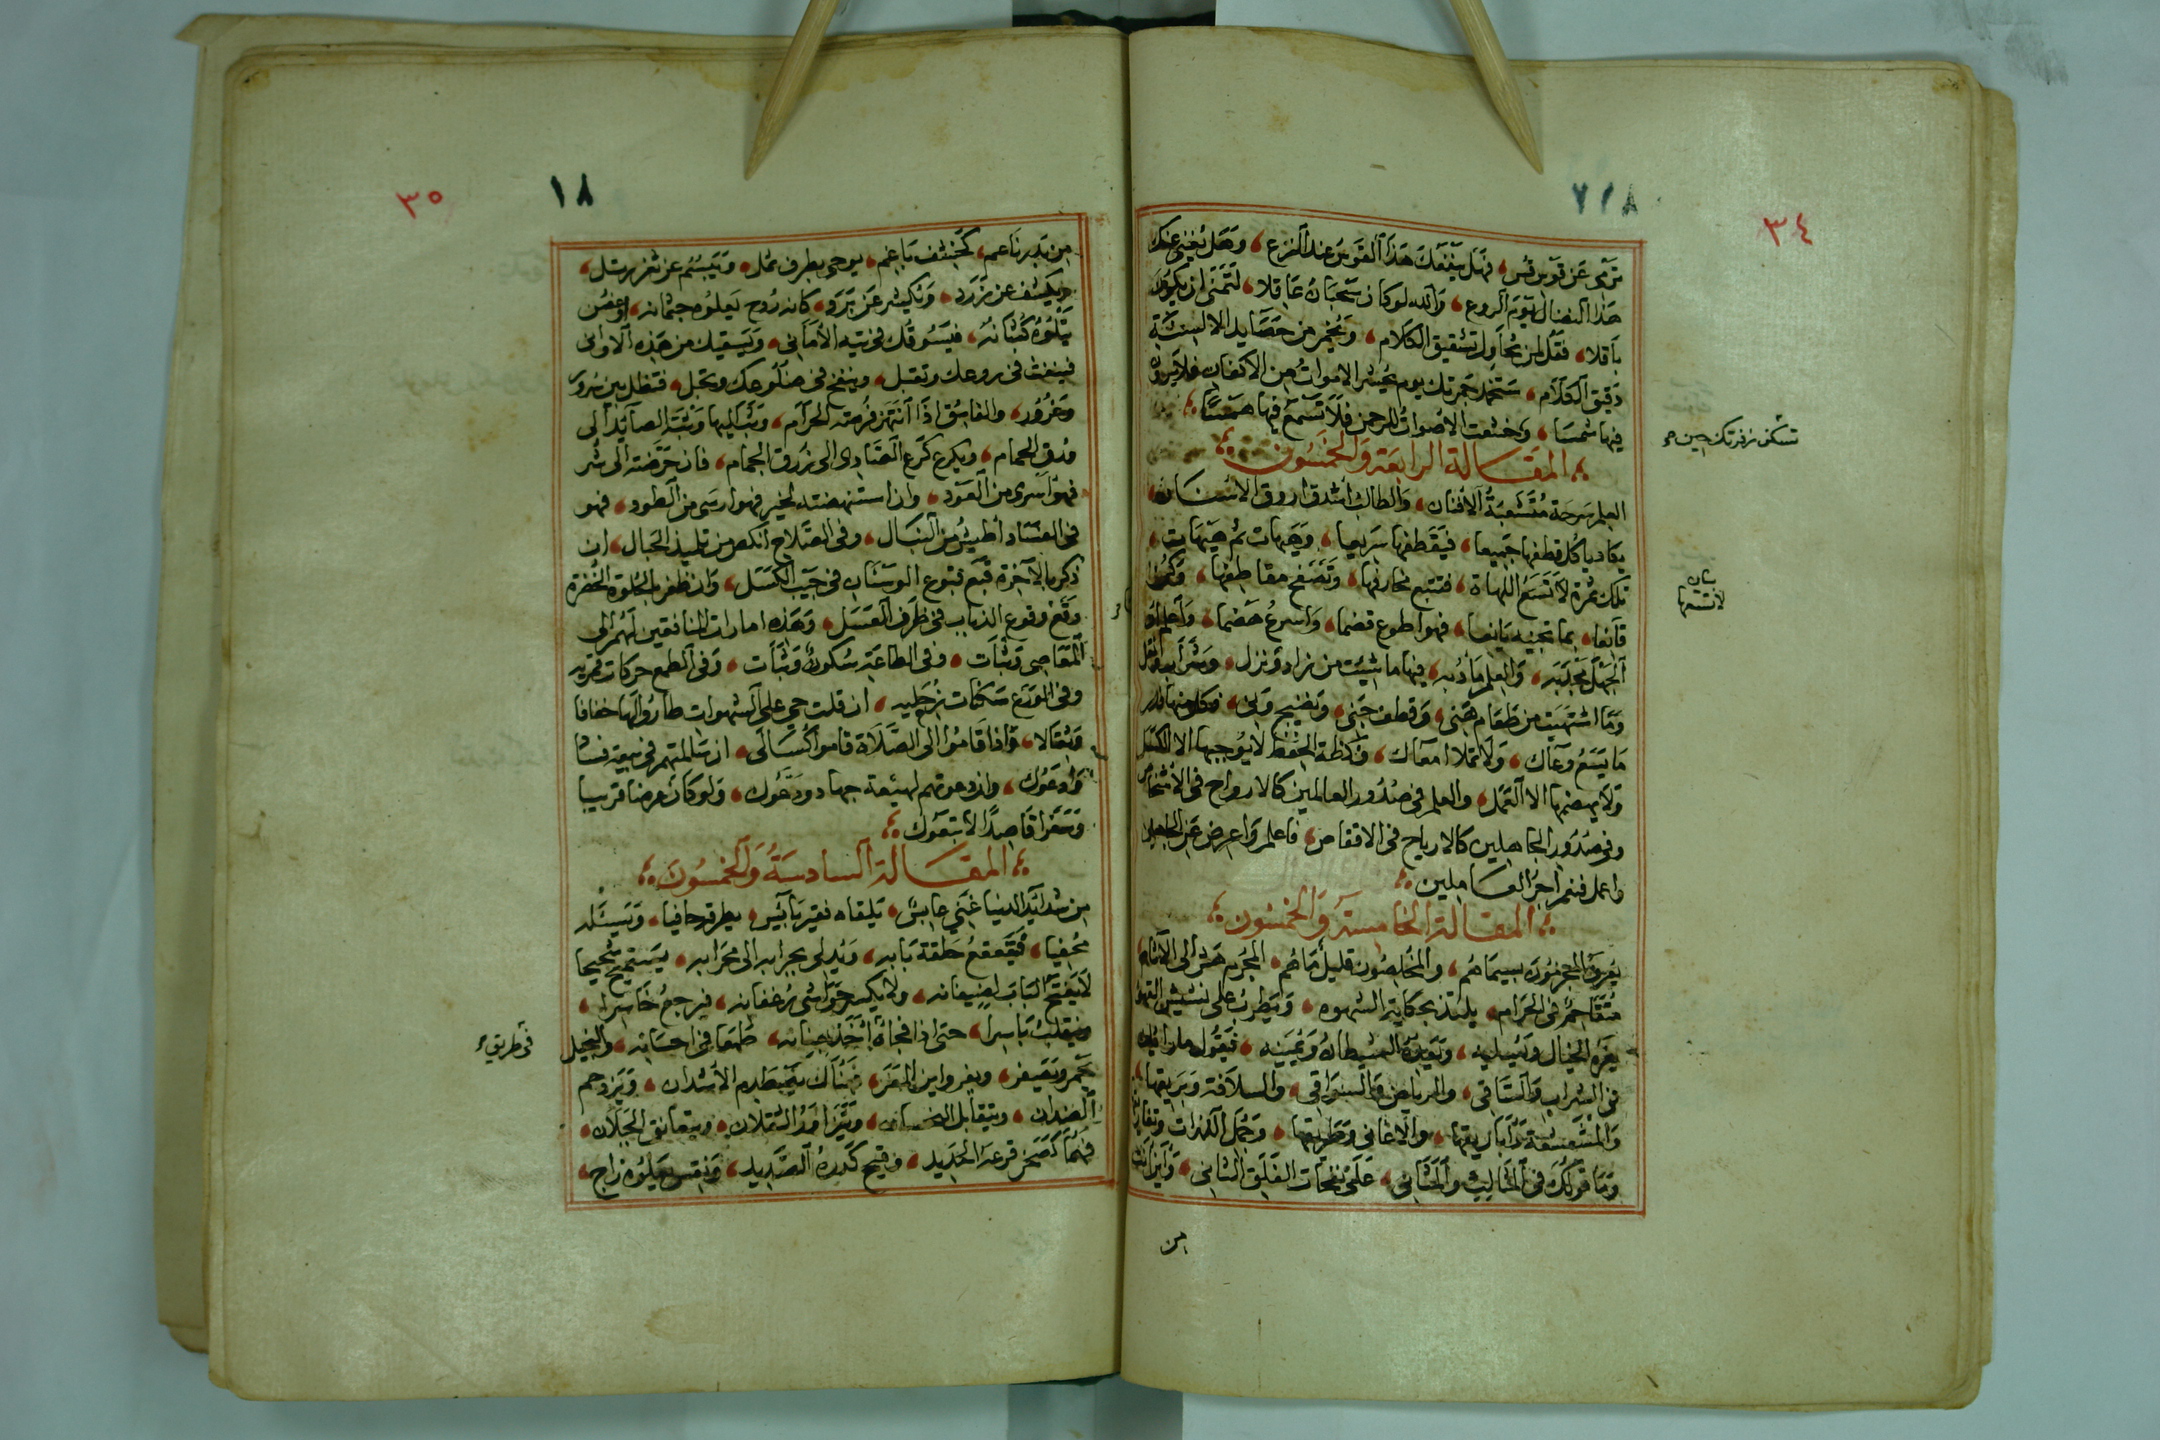 ٣٤
٧١٨
ترمى عن قوس قس، فهل ينفعك هذا القوس عند النزع، وهل يغنى عنك
هذا النضال يوم الروع، والله لو كان سحبان عاقلا، لتمنى ان يكون
باقلا، فقل لمن يحاول تشقيق الكلام، من حصايد الالسنة
دقيق الكلام، ستخمد جمرتك يوم يحشر الاموات من الاكفان فلا يرون
فيها شمسا، وخشعت الاصوات للرحمن فلا تسمع فيها همسا
تسكن زفرتك حين
المقالة الرابعة والخمسون
العلم سرحة متشعبة الافنان، والطالب اشدق اروق الاسنان
يكاد ياكل قطفها جميعا، فيقطفها سريعا، وهيهات ثم هيهات
تلك ثمرة لا تسع اللهاة، فتتبع مخارفها، وتصفح مقاطفها، وكن
بيان
لا تسعها
قانعا، بما تجنيه يانعا، فهو اطوع قضما، واسرع هضما، واعلم ان
الجهل مجدبة، والعلم مأدبة، فيها ما شئت من زاد ونزل، وشراب ونقل
وما اشتهيت من طعام هنى، وقطف جنى، ونضيج ولى، فكل منها قدر
ما يسع وعاك، ولا تملا امعاك، وكظة الحفظ لا يوجبها الا الكسل
ولا يهضمها الا العمل، والعلم فى صدور العالمين كالارواح فى الاشخاص
وفى صدور الجاهلين كالارياح فى الاقفاص، فاعلم واعرض عن الجاهلين
واعمل فنعم اجر العاملين
المقالة الخامسة والخمسون
يعرف المجرمون بسيماهم، والمخلصون قليل ما هم، المجرم هش الى الآثام
متقاحم فى الحرام، يلتذ بحكاية الشهوة، ويطرب على نشيش القهوة
يغره الخيال ويسليه، ويعده الشيطان ويمنيه، فيقول ما رأيك
فى الشراب والساقى، والرياض والسواقى، والسلافة وبريقها
والمشعشعة واباريقها، والاغانى وطريقها، وجمل اللذات وتفاريقها
وما قولك فى المثالث والمثانى، على نفحات الفلق الثانى، واين انت
من
٣٥
١٨
من بدر ناعم، كخشف باغم، يوحى بطرف ثمل، ويتبسم عن ثغر رتل
ويكشف عن زرد، ويكشر عن برد، كانه روح يعلوه جثمانه، او غصن
يتلوه كثبانه، فيسوقك فى تيه الامانى، ويسقيك من هذه الاوانى
فينفث فى روعك وتقبل، وينفخ فى ضلوعك وتحبل، فتظل بين سرور
وغرور، والفاسق اذا انتهز فرصة الحرام، وثب اليها وثبة الصائد الى
ورق الحمام، ويكرع كرع الصادى الى زرق الجمام، فان حرضته الى شر
فهو اسرى من العود، وان استنهضته لخير فهو ارسى من الطود، فهو
فى الفساد اطيش من النبال، وفى الصلاح انكص من تلميذ الحبال، ان
ذكر بالآخرة قبع قبوع الوسنان فى جيب الكسل، وان ظفر بالحلوة الخضرة
وقع وقوع الذباب فى ظرف العسل، وهذه امارات المنافقين لهم الى
المعاصى وثبات، وفى الطاعة سكون وثبات، وفى الطمع حركات
وفى الورع سكنات زحلية، ان قلت حى على الشهوات طاروا اليها خفافا
وثقالا، واذا قاموا الى الصلاة قاموا كسالى، ان سالمتهم فى
وادعوك، وان دعوتهم لهيعة جهاد ودعوك، ولو كان عرضا قريبا
وسفرا قاصدا لاتبعوك
المقالة السادسة والخمسون
من شدايد الدنيا غنى عابس، تلقاه فقير بائس، يطرقه حافيا، ويسئله
محفيا، فيقعقع حلقة بابه، ويدلى بجرابه الى محرابه، يستميح شحيحا
لا يفتح الباب لضيفانه، ولا يكسر حواشى رغفانه، فيرجع خاسرا
وينقلب باسرا، حتى اذا فجاه اخذ بعنانه، طمعا فى احسانه، والبخيل
فى طريق
يحمر ويصفر، ويفر واين المفر، فهناك يتخبط الاشدان، ويزدحم
الضدان، ويتقابل الخصمان، ويتزاور الثقلان، ويتعانق الجبلان
فهما كصخر قرعه الحديد، وقيح كدره الصديد، ونقس يعلوه زاج